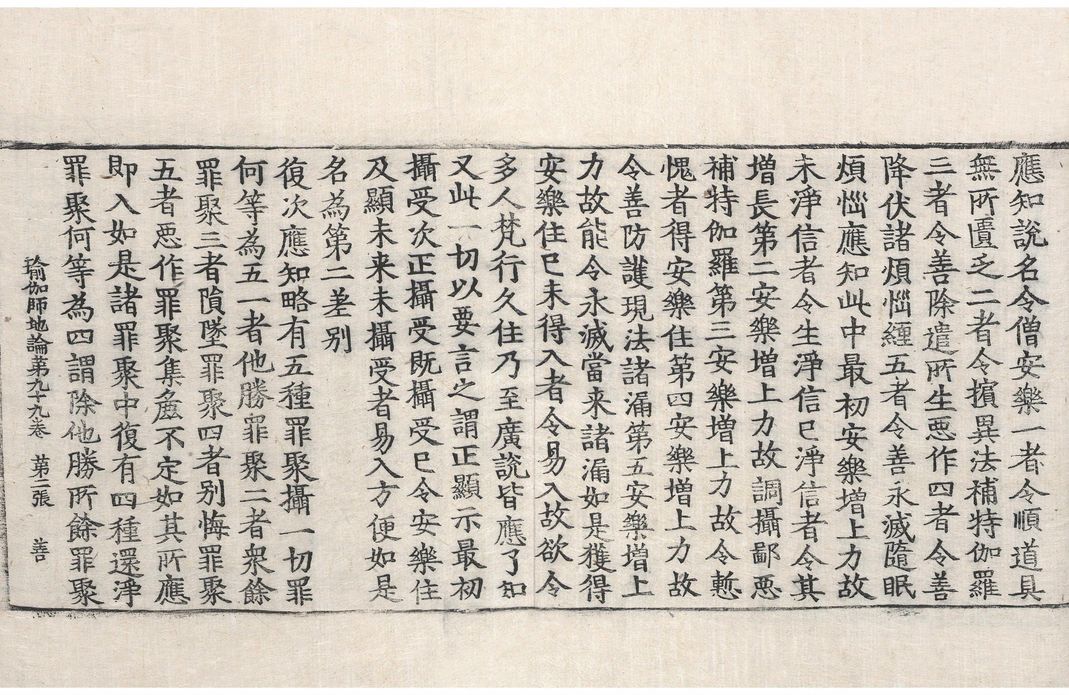 應知說名令僧安樂一者令順道具
無所匱乏二者令擯異法補特伽羅
三者令善除遣所生惡作四者令善
降伏諸煩惱纏五者令善永滅隨眠
煩惱應知此中最初安樂增上力故
未淨信者令生淨信已淨信者令其
增長第二安樂增上力故調攝鄙惡
補特伽羅第三安樂增上力故令慙
愧者得安樂住第四安樂增上力故
令善防護現法諸漏第五安樂增上
力故能令永滅當来諸漏如是獲得
安樂住已未得入者令易入故欲令
多人梵行久住乃至廣說皆應了知
又此一切以要言之謂正顯示最初
攝受次正攝受既攝受已令安樂住
及顯未来未攝受者易入方便如是
名為第二差别
復次應知略有五種罪聚攝一切罪
何等為五一者他勝罪聚二者衆餘
罪聚三者隕墜罪聚四者别悔罪聚
五者惡作罪聚集麁不定如其所應
即入如是諸罪聚中復有四種還淨
罪聚何等為四謂除他勝所餘罪聚
瑜伽師地論第九十九卷 第二張 善